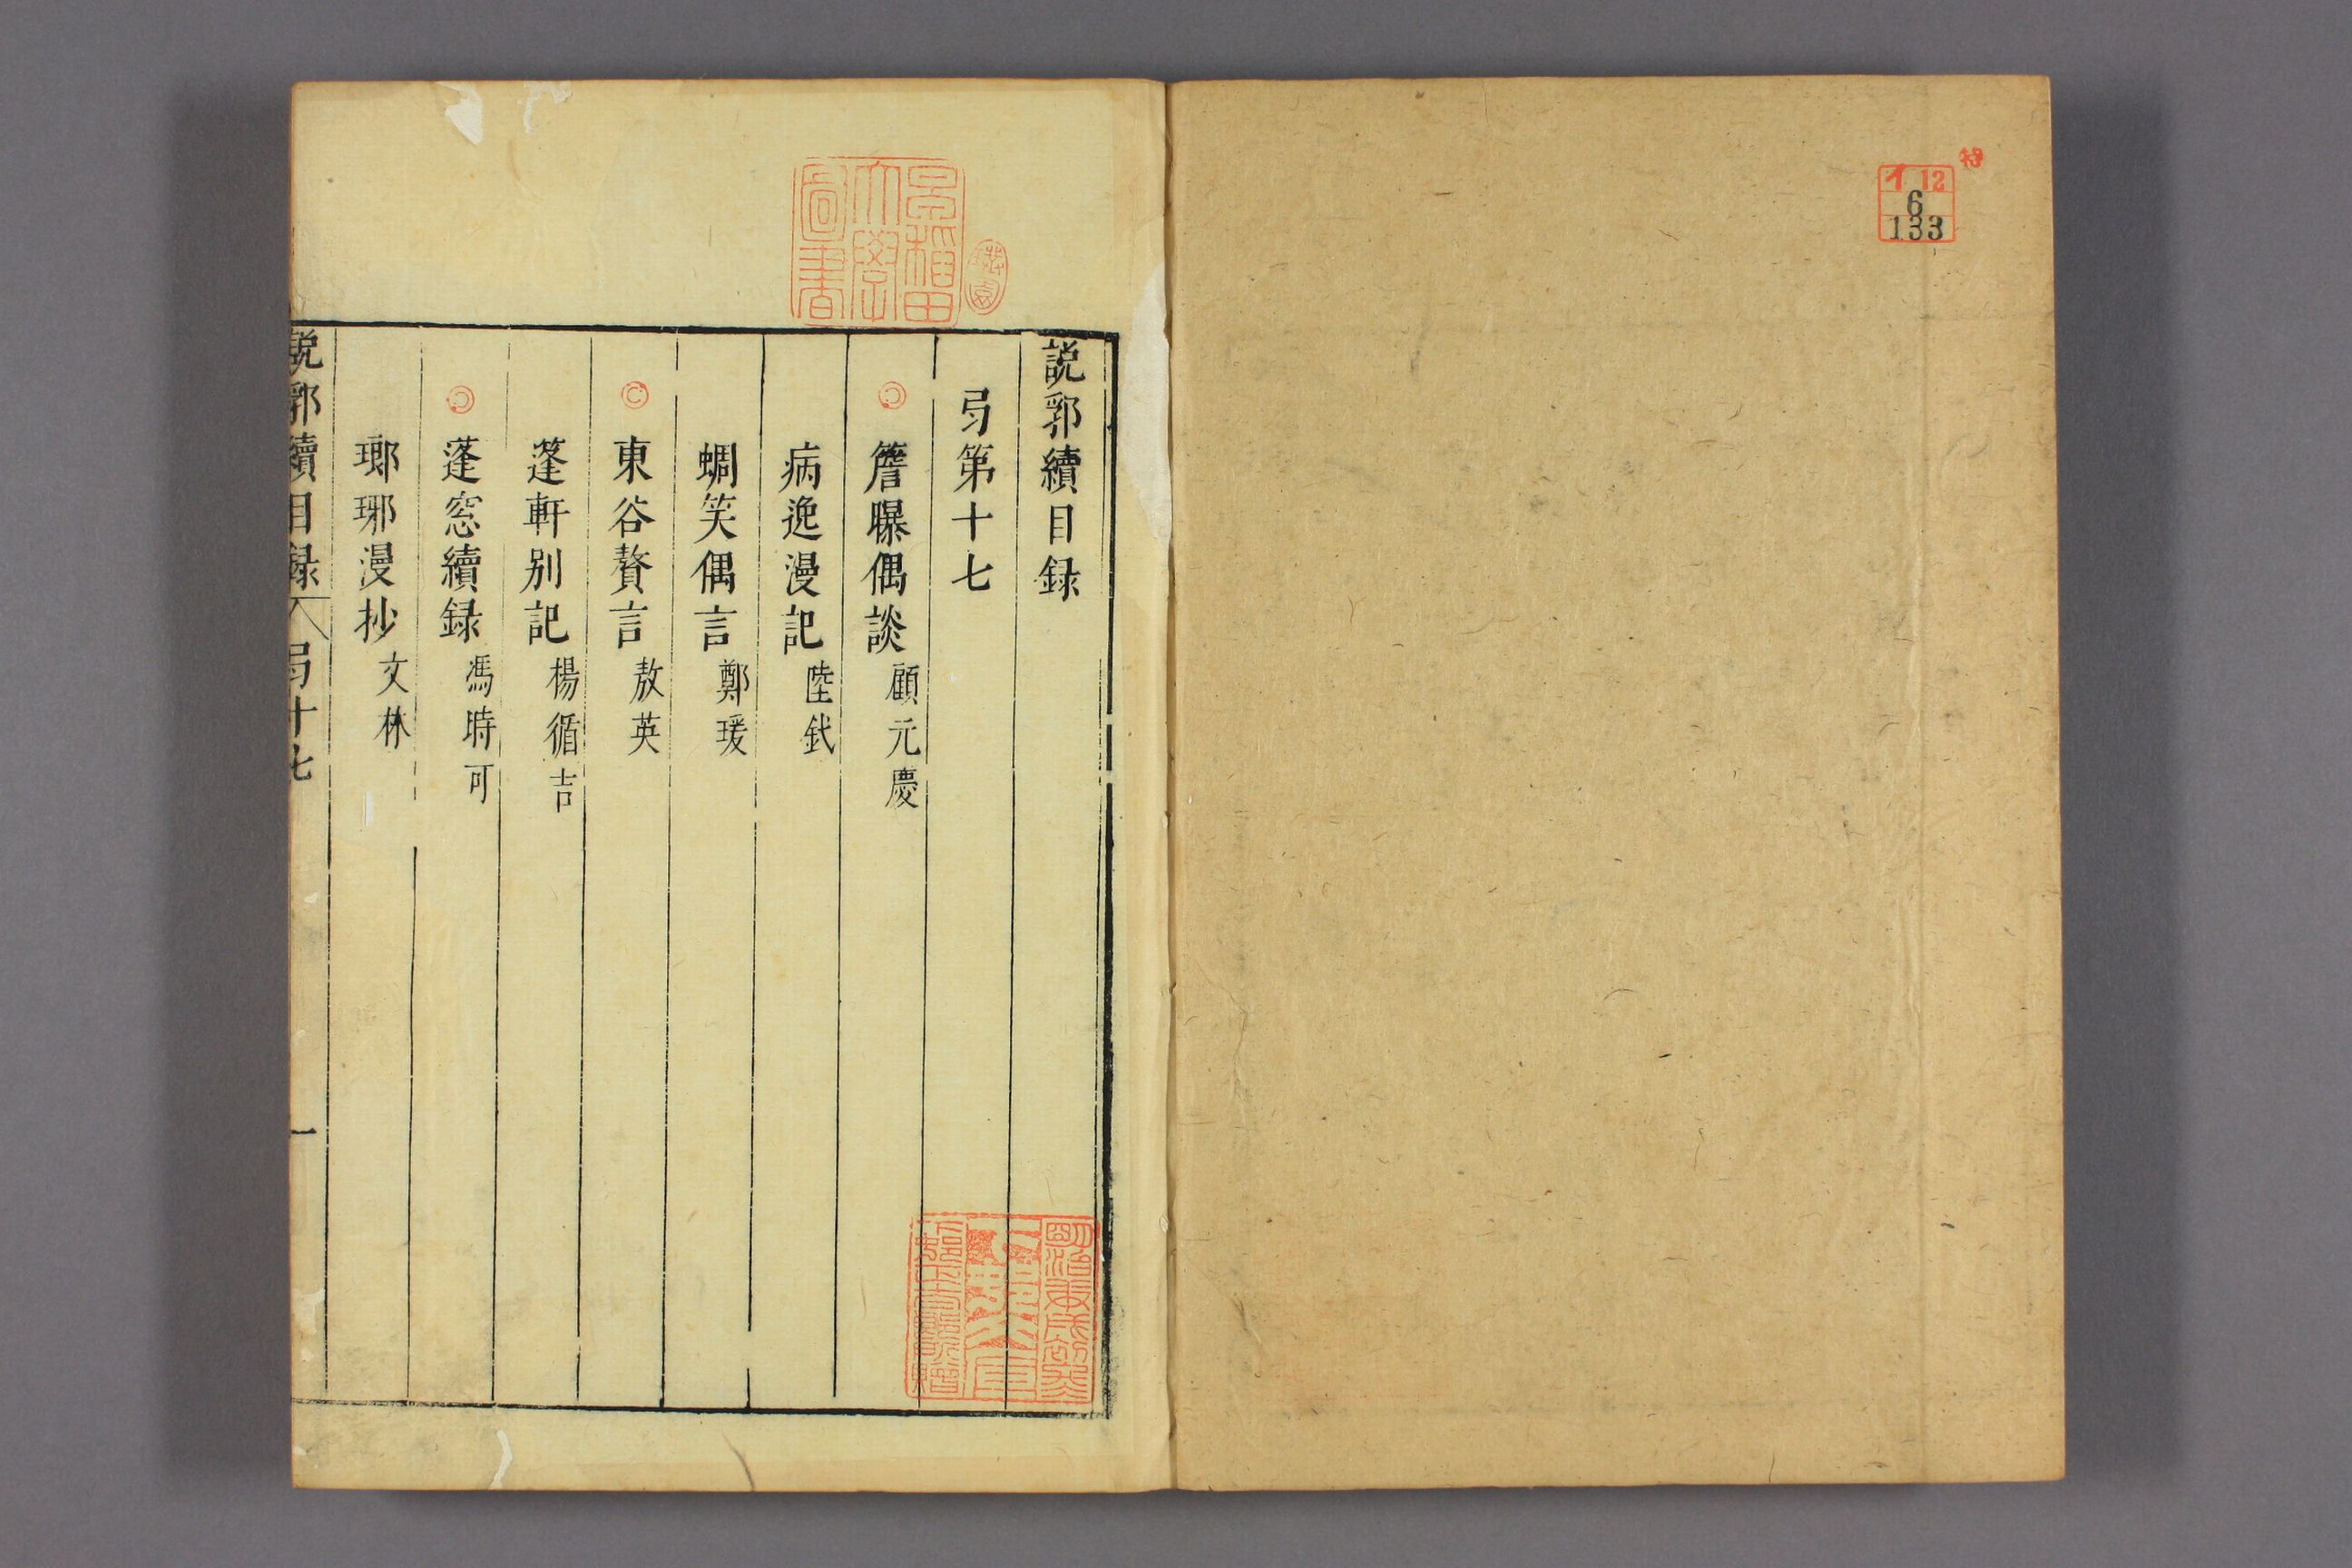 特
イ 12
6
133
早稲田
大學
圖書
説郛續目録
弓第十七
簷曝偶談 顧元慶
病逸漫記 陸釴
蜩笑偶言 鄭瑗
東谷贅言 敖英
篷軒别記 楊循吉
蓬窓續録 馮時可
瑯琊漫抄 文林
説郛續目録 弓十七 一